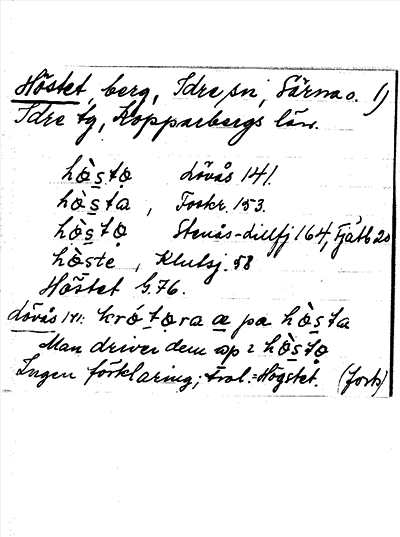 Höstet, berg, Idre sn, Särna o. 1)
Idre tg, Kopparbergs län.
hò̱s̱tọ Lövås 141.
hò̱s̱ta, Foskr. 153.
hò̱s̱tọ Stenås-dillfj 164, Fjätb 20
hò̱ste, Klutsj. 58
Höstet G.76.
Lövås 141: kró ṯo̱ra a̱ pa hò̱s̱ta
Man driver dem op i hò̱s̱tọ
Ingen förklaring; trol. = Högstet. (forts)